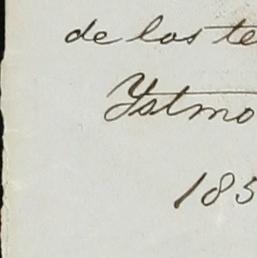 de los te
Ystmo
185